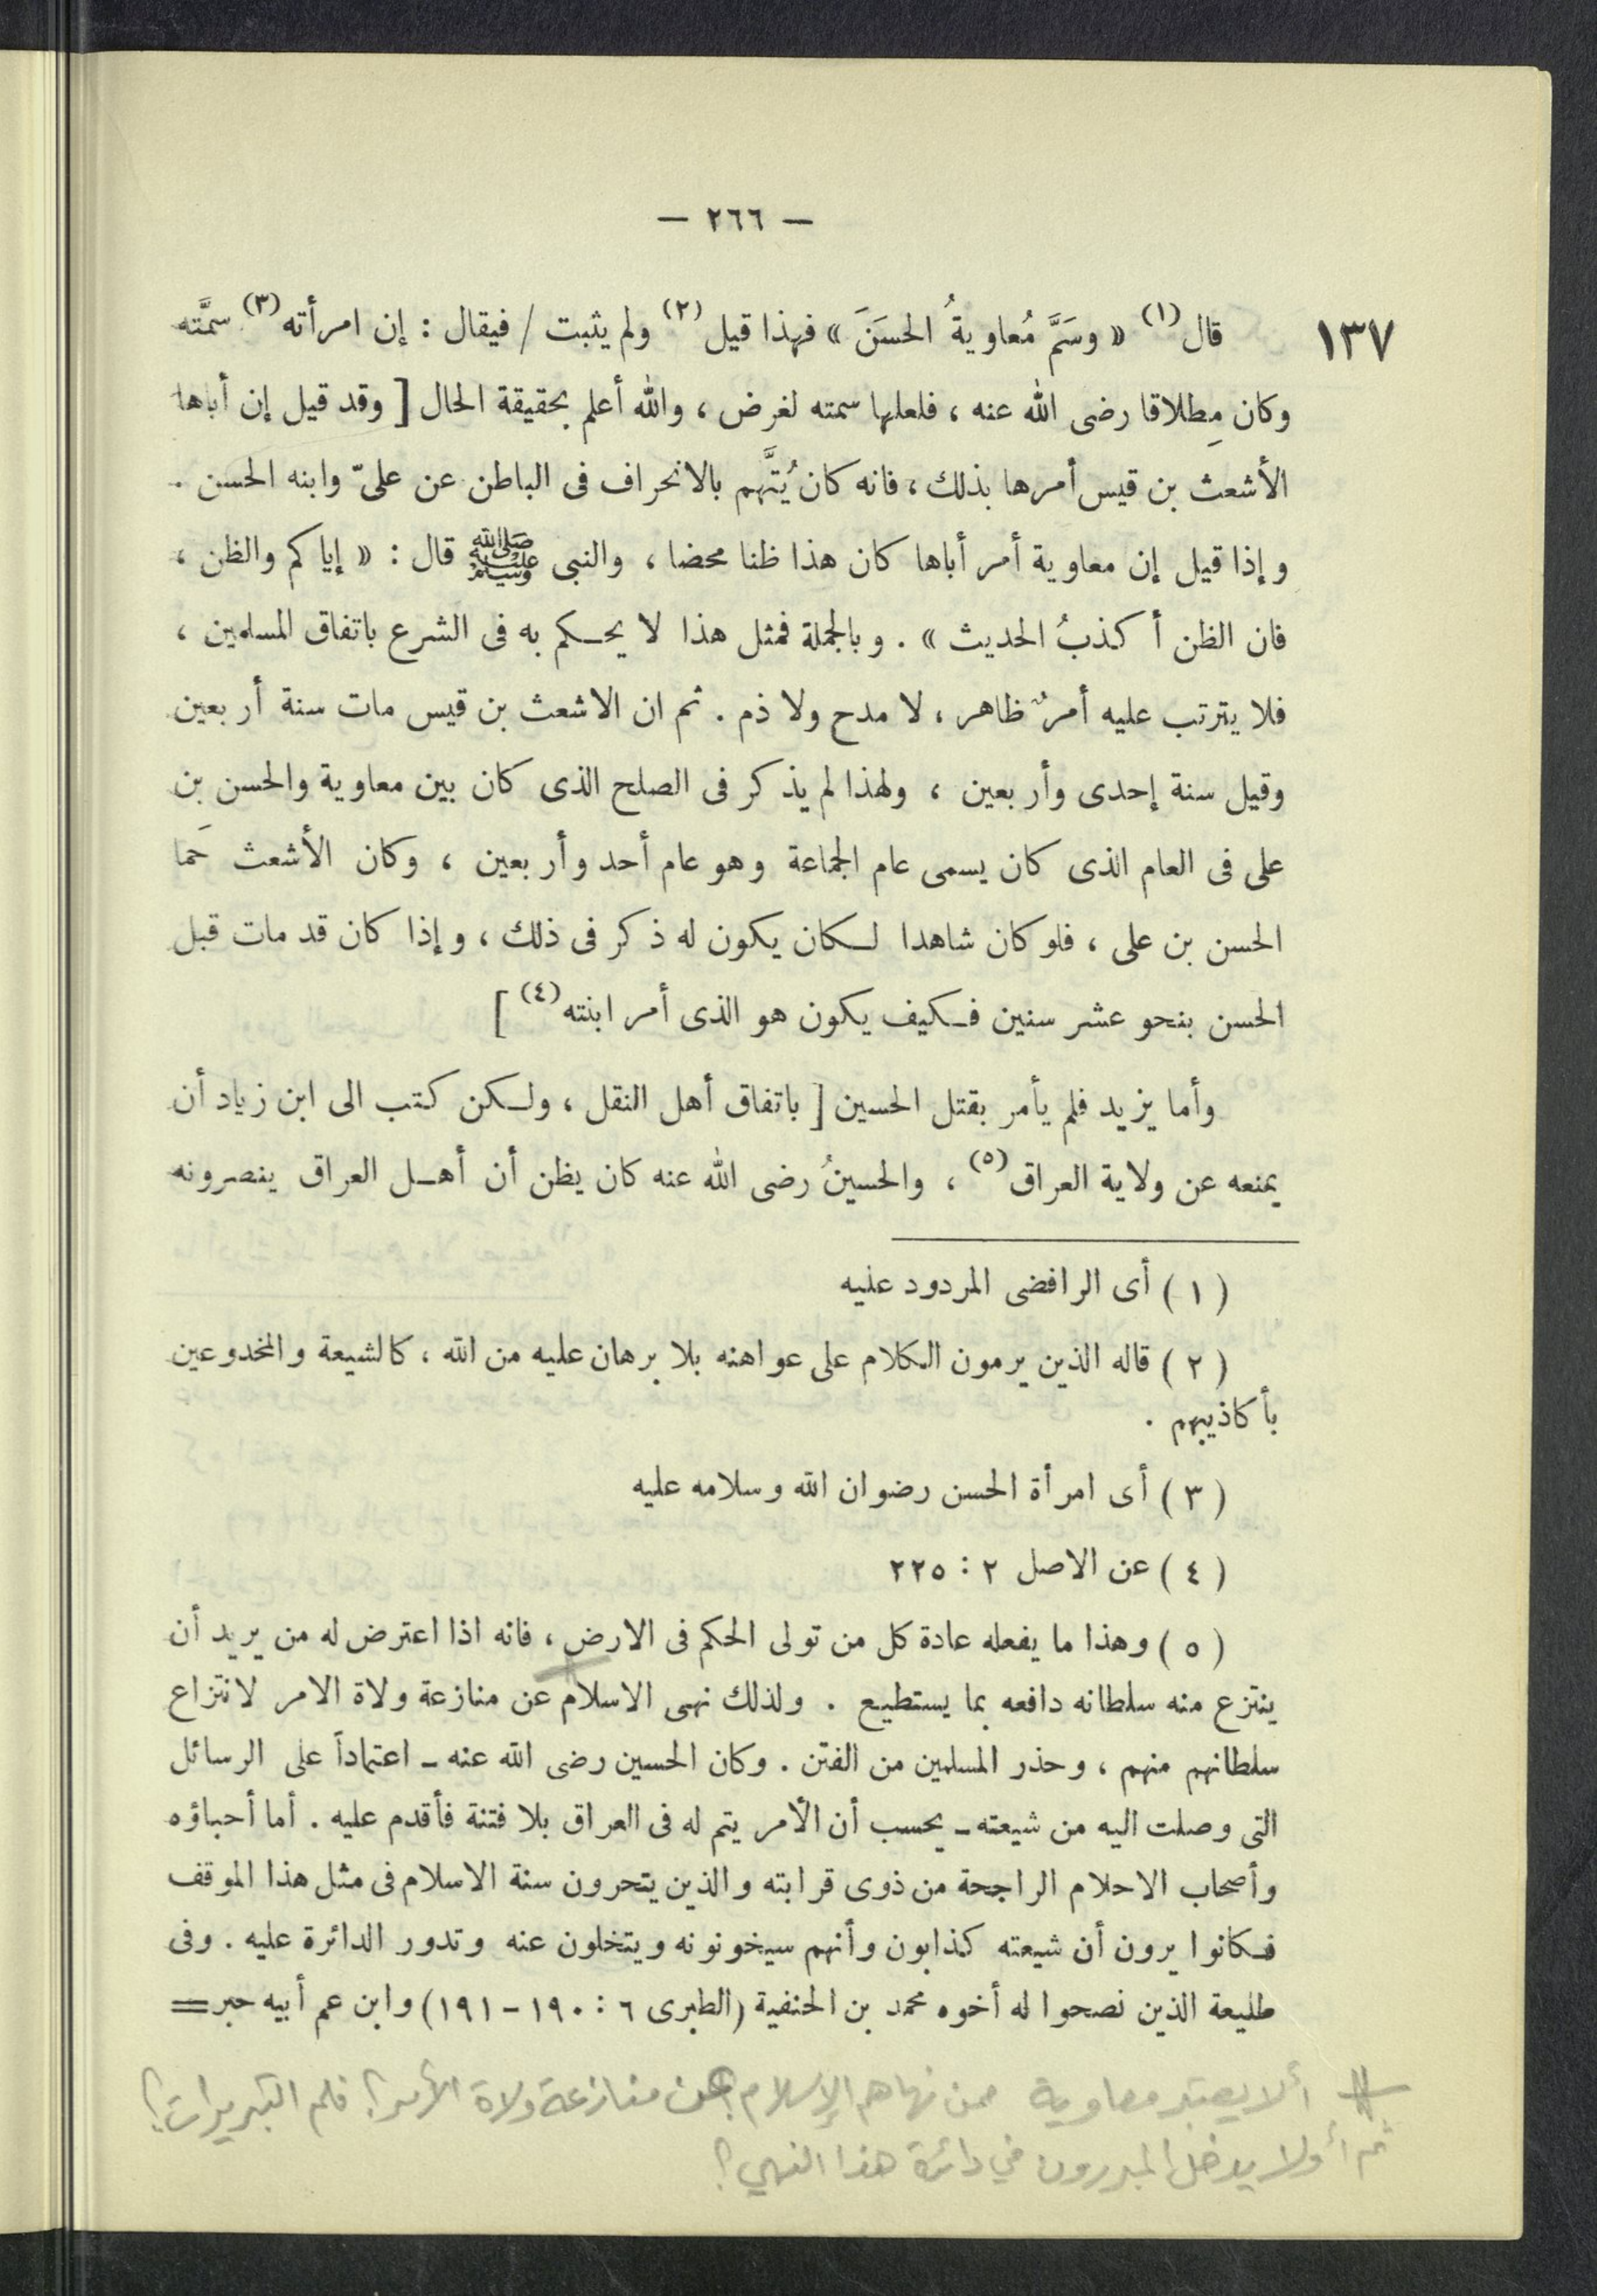 — ٢٦٦ —
١٣٧
قال (١) « وسَمَّ مُعاويةُ الحسَنَ » فهذا قيل (٢) ولم يثبت / فيقال : إن امرأته (٣) سمَّته
وكان مِطلاقا رضى الله عنه ، فلعلها سمته لغرض ، والله أعلم بحقيقة الحال [ وقد قيل إن أباها
الأشعث بن قيس أمرها بذلك ، فانه كان يُتَّهم بالانحراف فى الباطن عن علىّ وابنه الحسن .
وإذا قيل إن معاوية أمر أباها كان هذا ظنا محضا ، والنبى ﷺ قال : « إياكم والظن ،
فان الظن أكذبُ الحديث » . وبالجملة فمثل هذا لا يحـكم به فى الشرع باتفاق المسلمين ،
فلا يترتب عليه أمرٌ ظاهر ، لا مدح ولا ذم . ثم ان الاشعث بن قيس مات سنة أربعين
وقيل سنة إحدى وأربعين ، ولهذا لم يذكر فى الصلح الذى كان بين معاوية والحسن بن
على فى العام الذى كان يسمى عام الجماعة وهو عام أحد وأربعين ، وكان الأشعث حَما
الحسن بن على ، فلو كان شاهدا لـكان يكون له ذكر فى ذلك ، وإذا كان قد مات قبل
الحسن بنحو عشر سنين فـكيف يكون هو الذى أمر ابنته (٤) ]
وأما يزيد فلم يأمر بقتل الحسين [ باتفاق أهل النقل ، ولـكن كتب الى ابن زياد أن
يمنعه عن ولاية العراق (٥) ، والحسينُ رضى الله عنه كان يظن أن أهـل العراق ينصرونه
( ١ ) أى الرافضى المردود عليه
( ٢ ) قاله الذين يرمون الكلام على عواهنه بلا برهان عليه من الله ، كالشيعة والمخدوعين
بأكاذيبهم .
( ٣ ) أى امرأة الحسن رضوان الله وسلامه عليه
( ٤ ) عن الاصل ٢ : ٢٢٥
( ٥ ) وهذا ما يفعله عادة كل من تولى الحكم فى الارض ، فانه اذا اعترض له من يريد أن
ينتزع منه سلطانه دافعه بما يستطيع . ولذلك نهى الاسلام عن منازعة ولاة الامر لانتزاع
سلطانهم منهم ، وحذر المسلمين من الفتن . وكان الحسين رضى الله عنه ـ اعتماداً على الرسائل
التى وصلت اليه من شيعته ـ يحسب أن الأمر يتم له فى العراق بلا فتنة فأقدم عليه . أما أحباؤه
وأصحاب الاحلام الراجحة من ذوى قرابته والذين يتحرون سنة الاسلام فى مثل هذا الموقف
فـكانوا يرون أن شيعته كذابون وأنهم سيخونونه ويتخلون عنه وتدور الدائرة عليه . وفى
طليعة الذين نصحوا له أخوه محمد بن الحنفية (الطبرى ٦ : ١٩٠ - ١٩١) وابن عم أبيه حبر =
ألا يعتبر معاوية ممن نهاهم الإسلام عن منازعة ولاة الأمر ؟ فلم التبريرات ؟
ثم أولا يدخل المبررون في دائرة هذا النهي ؟